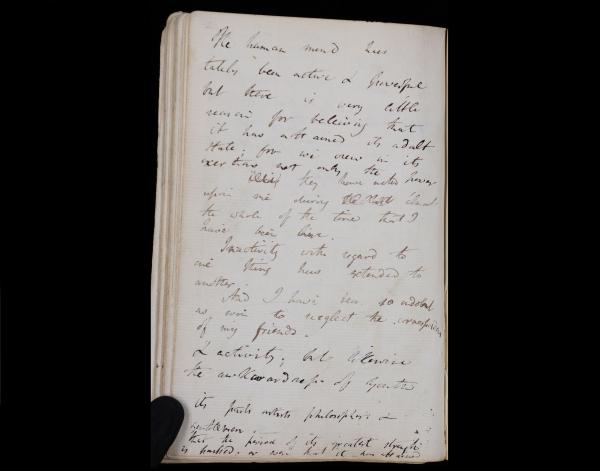 The human mind has
lately been active & powerful
but there is very little
reason for believing that
it has attained its adult
state: for we view in its
exertions not only the power
they have acted
upon me during
the whole of the time that I
have been here.
Inactivity with regard to
one thing has extended to
another.
And I have been so indolent
as even to neglect the
of my friends.
& activity; but likewise
the awkwardness of youth
its poets artists philosophers &
gentlemen.
that the period of its greatest strength
is passed. or even that it has attained